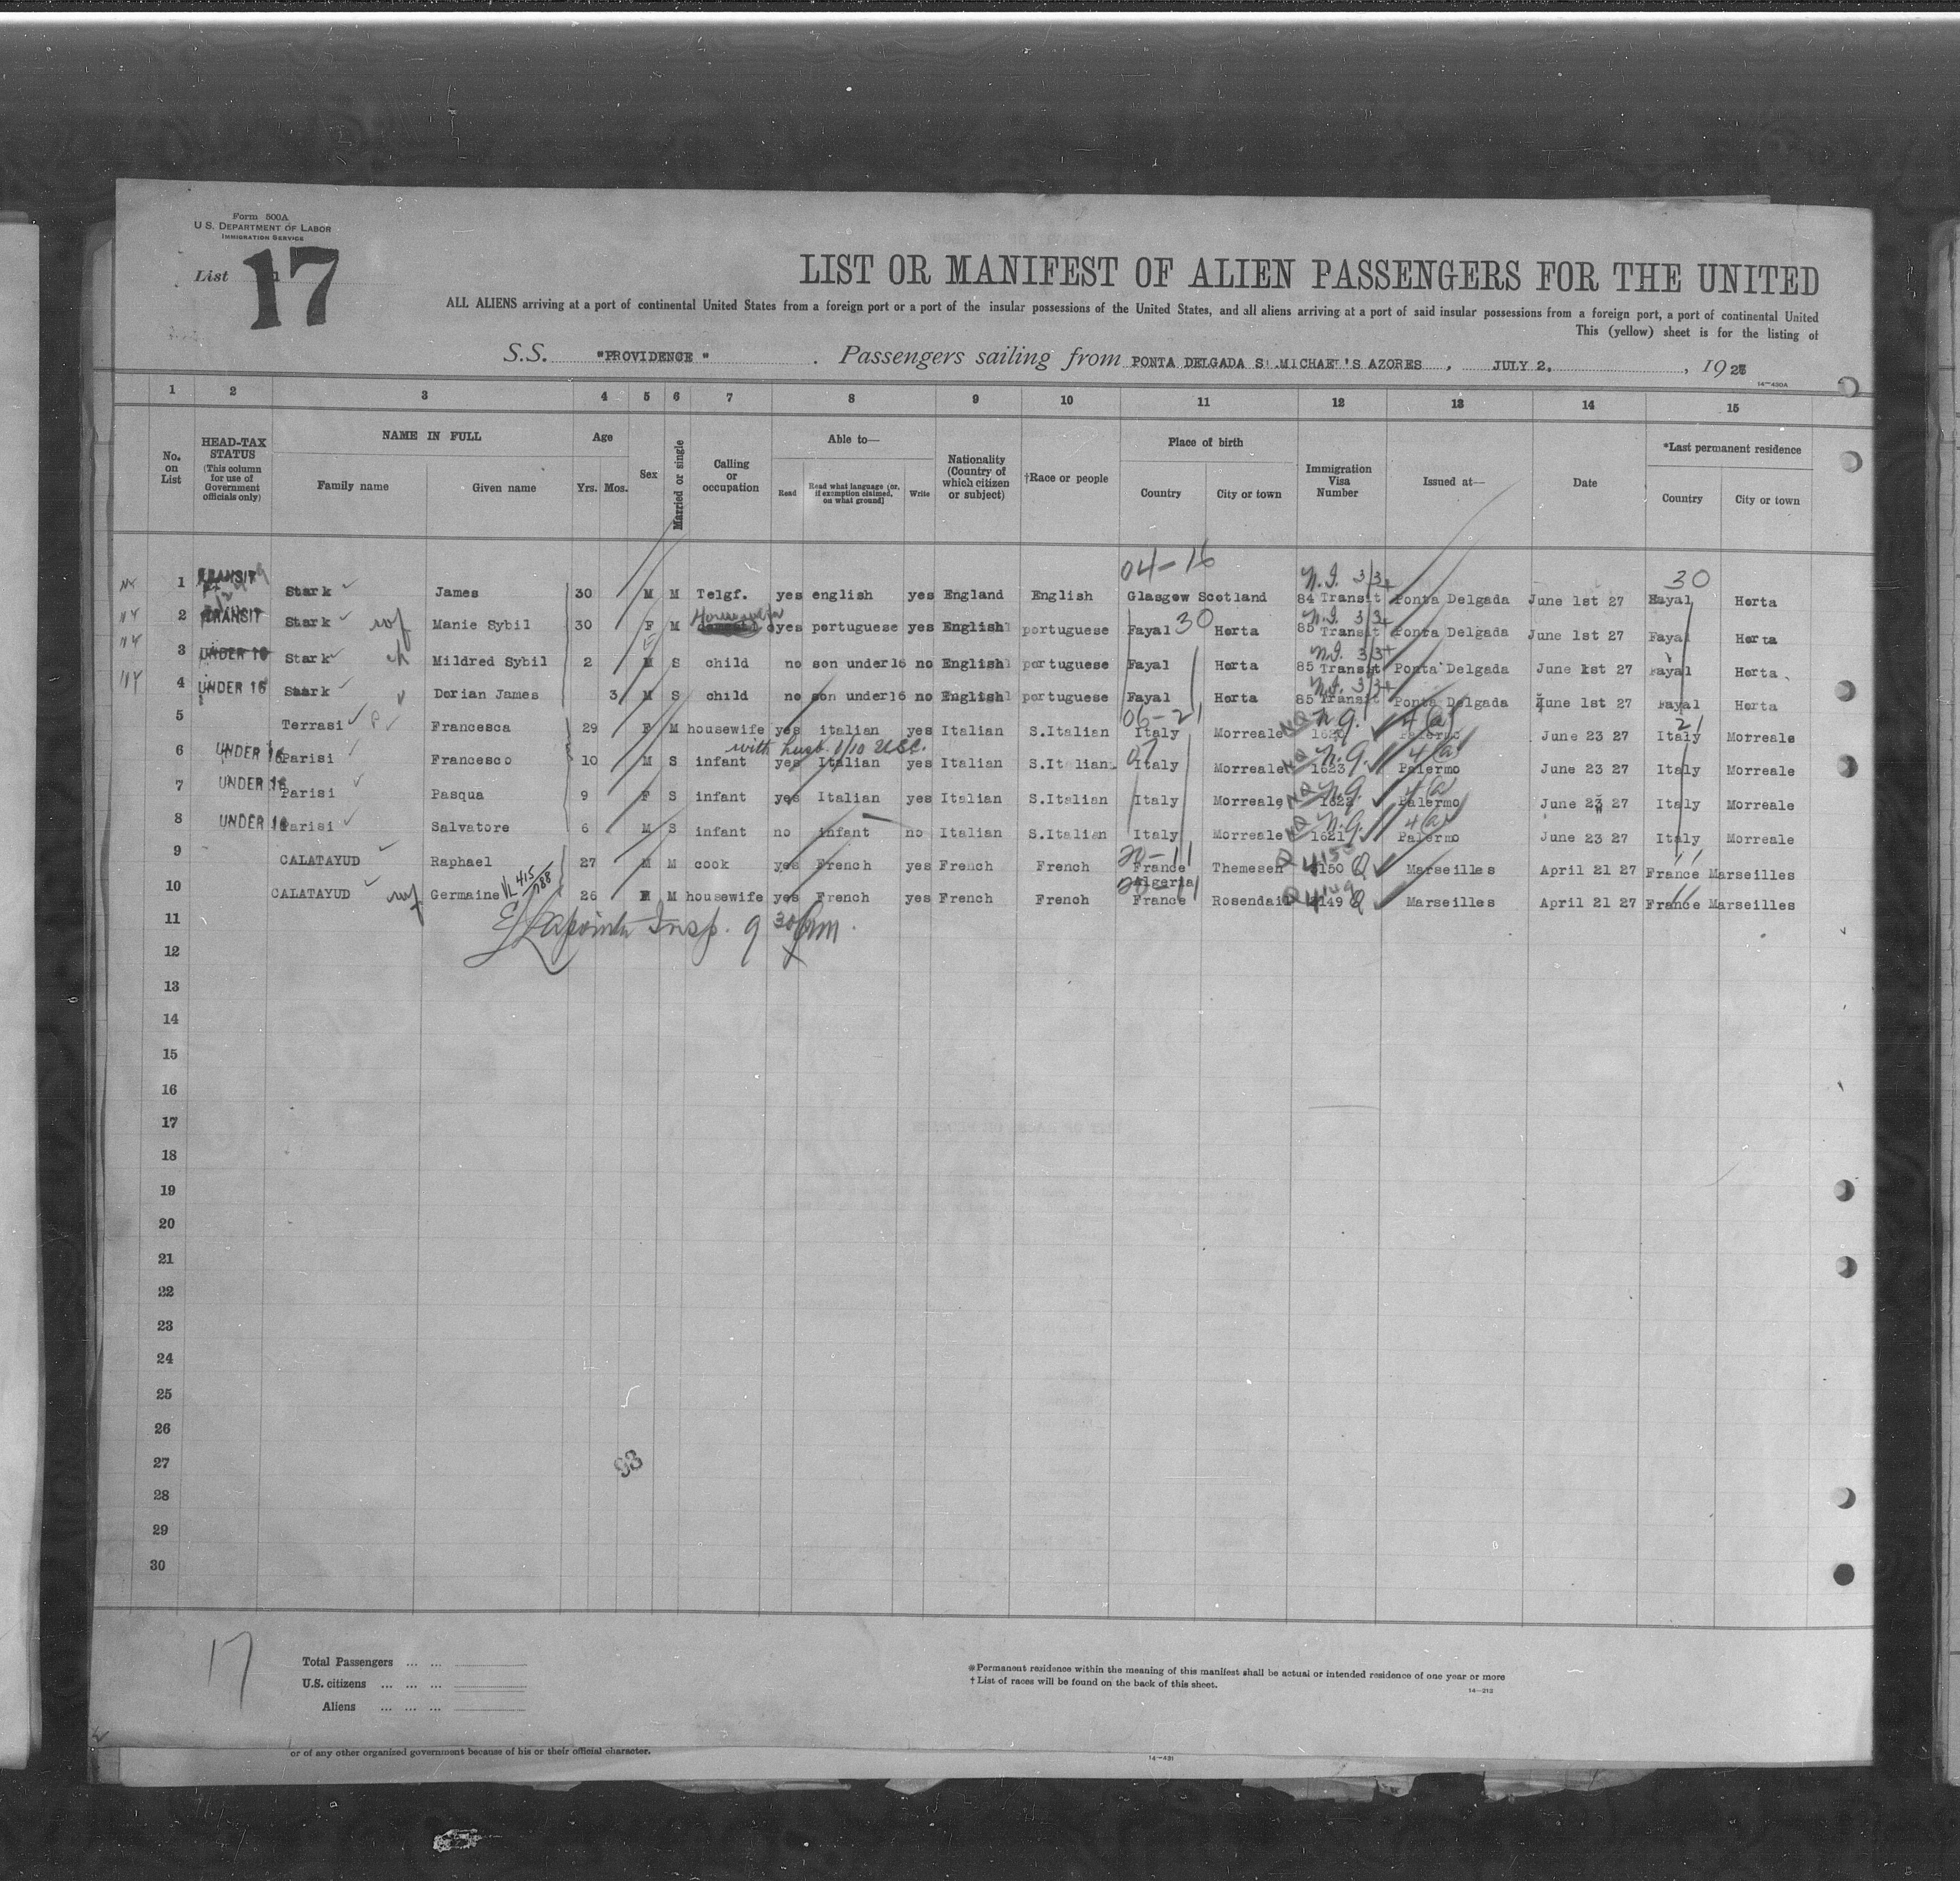 Form 500A
U.S. DEPARTMENT OF LABOR
IMMIGRATION SERVICE
List 17
LIST OR MANIFEST OF ALIEN PASSENGERS FOR THE UNITED
ALL ALIENS arriving at a port of continental United States from a foreign port or a port of the insular possessions of the United States, and all aliens arriving at a port of said insular possessions from a foreign port, a port of continental United
This (yellow) sheet is for the listing of
S.S. "PROVIDENCE" . Passengers sailing from PONTA DELGADA S .MICHAEL'S AZORES , JULY 2. , 19
14—430A
1 2 3 4 5 6 7 8 9 10 11 12 13 14 15
No. on List
HEAD-TAX STATUS (This column for use of Government officials only)
NAME IN FULL
Family name Given name
Age
Yrs. Mos.
Sex
Married or single
Calling or occupation
Able to—
Read Read what language (or, if exemption claimed, on what ground) Write
Nationality (Country of which citizen or subject)
†Race or people
Place of birth
Country City or town
Immigration Visa Number
Issued at—
Date
*Last permanent residence
Country City or town
04-16 N.I. 3/3+ 30
1 TRANSIT Stark James 30 M M Telgf. yes english yes England English Glasgow Scotland 84 Transit Ponta Delgada June 1st 27 Fayal Horta
Housewife N.I. 3/3+
2 TRANSIT Stark wf Manie Sybil 30 F M yes portuguese yes English portuguese Fayal 30 Horta 85 Transit Ponta Delgada June 1st 27 Fayal Horta
F N.I. 3/3+
3 UNDER 16 Stark ch Mildred Sybil 2 M S child no son under16 no English portuguese Fayal Horta 85 Transit Ponta Delgada June 1st 27 Fayal Horta
N.I. 3/3+
4 UNDER 16 Stark Dorian James 3 M S child no son under16 no English portuguese Fayal Horta 85 Transit Ponta Delgada June 1st 27 Fayal Horta
06-21 NQ N.Q. 4(a) 21
5 Terrasi Francesca 29 F M housewife yes italian yes Italian S.Italian Italy Morreale Palermo June 23 27 Italy Morreale
with husb. USC. NQ N.Q. 4(a)
6 UNDER 16 Parisi Francesco 10 M S infant yes Italian yes Italian S.Italian Italy Morreale 1623 Palermo June 23 27 Italy Morreale
NQ N.Q. 4(a)
7 UNDER 16 Parisi Pasqua 9 F S infant yes Italian yes Italian S.Italian Italy Morreale 1622 Palermo June 23 27 Italy Morreale
NQ N.Q. 4(a)
8 UNDER 16 Parisi Salvatore 6 M S infant no infant no Italian S.Italian Italy Morreale 1621 Palermo June 23 27 Italy Morreale
20-11 11
9 CALATAYUD Raphael 27 M M cook yes French yes French French France Themesen Q 4150 Q Marseilles April 21 27 France Marseilles
VL 415/788 Algeria
10 CALATAYUD wf Germaine 26 F M housewife yes French yes French French France Rosendail Q 4149 Q Marseilles April 21 27 France Marseilles
11 Lapointe Insp. 9 30
12
13
14
15
16
17
18
19
20
21
22
23
24
25
26
27 93
28
29
30
17
Total Passengers ... ...
U.S. citizens ... ... ...
Aliens ... ... ...
*Permanent residence within the meaning of this manifest shall be actual or intended residence of one year or more
†List of races will be found on the back of this sheet.
14—213
or of any other organized government because of his or their official character.
14—431